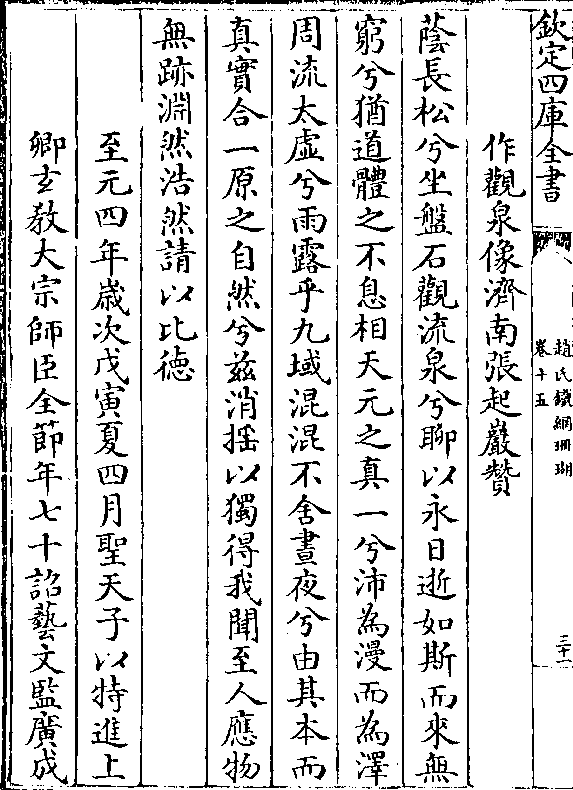 欽定四庫全書
趙氏鐵網珊瑚
卷十五
三十一
作觀泉像濟南張起巖贊
蔭長松兮坐盤石觀流泉兮聊以永日逝如斯而來無
窮兮猶道體之不息相天元之真一兮沛為漫而為澤
周流太虛兮雨露乎九域混混不舍晝夜兮由其本而
真實合一原之自然兮茲消揺以獨得我聞至人應物
無跡淵然浩然請以比德
至元四年歳次戊寅夏四月聖天子以特進上
卿玄教大宗師臣全節年七十詔藝文監廣成